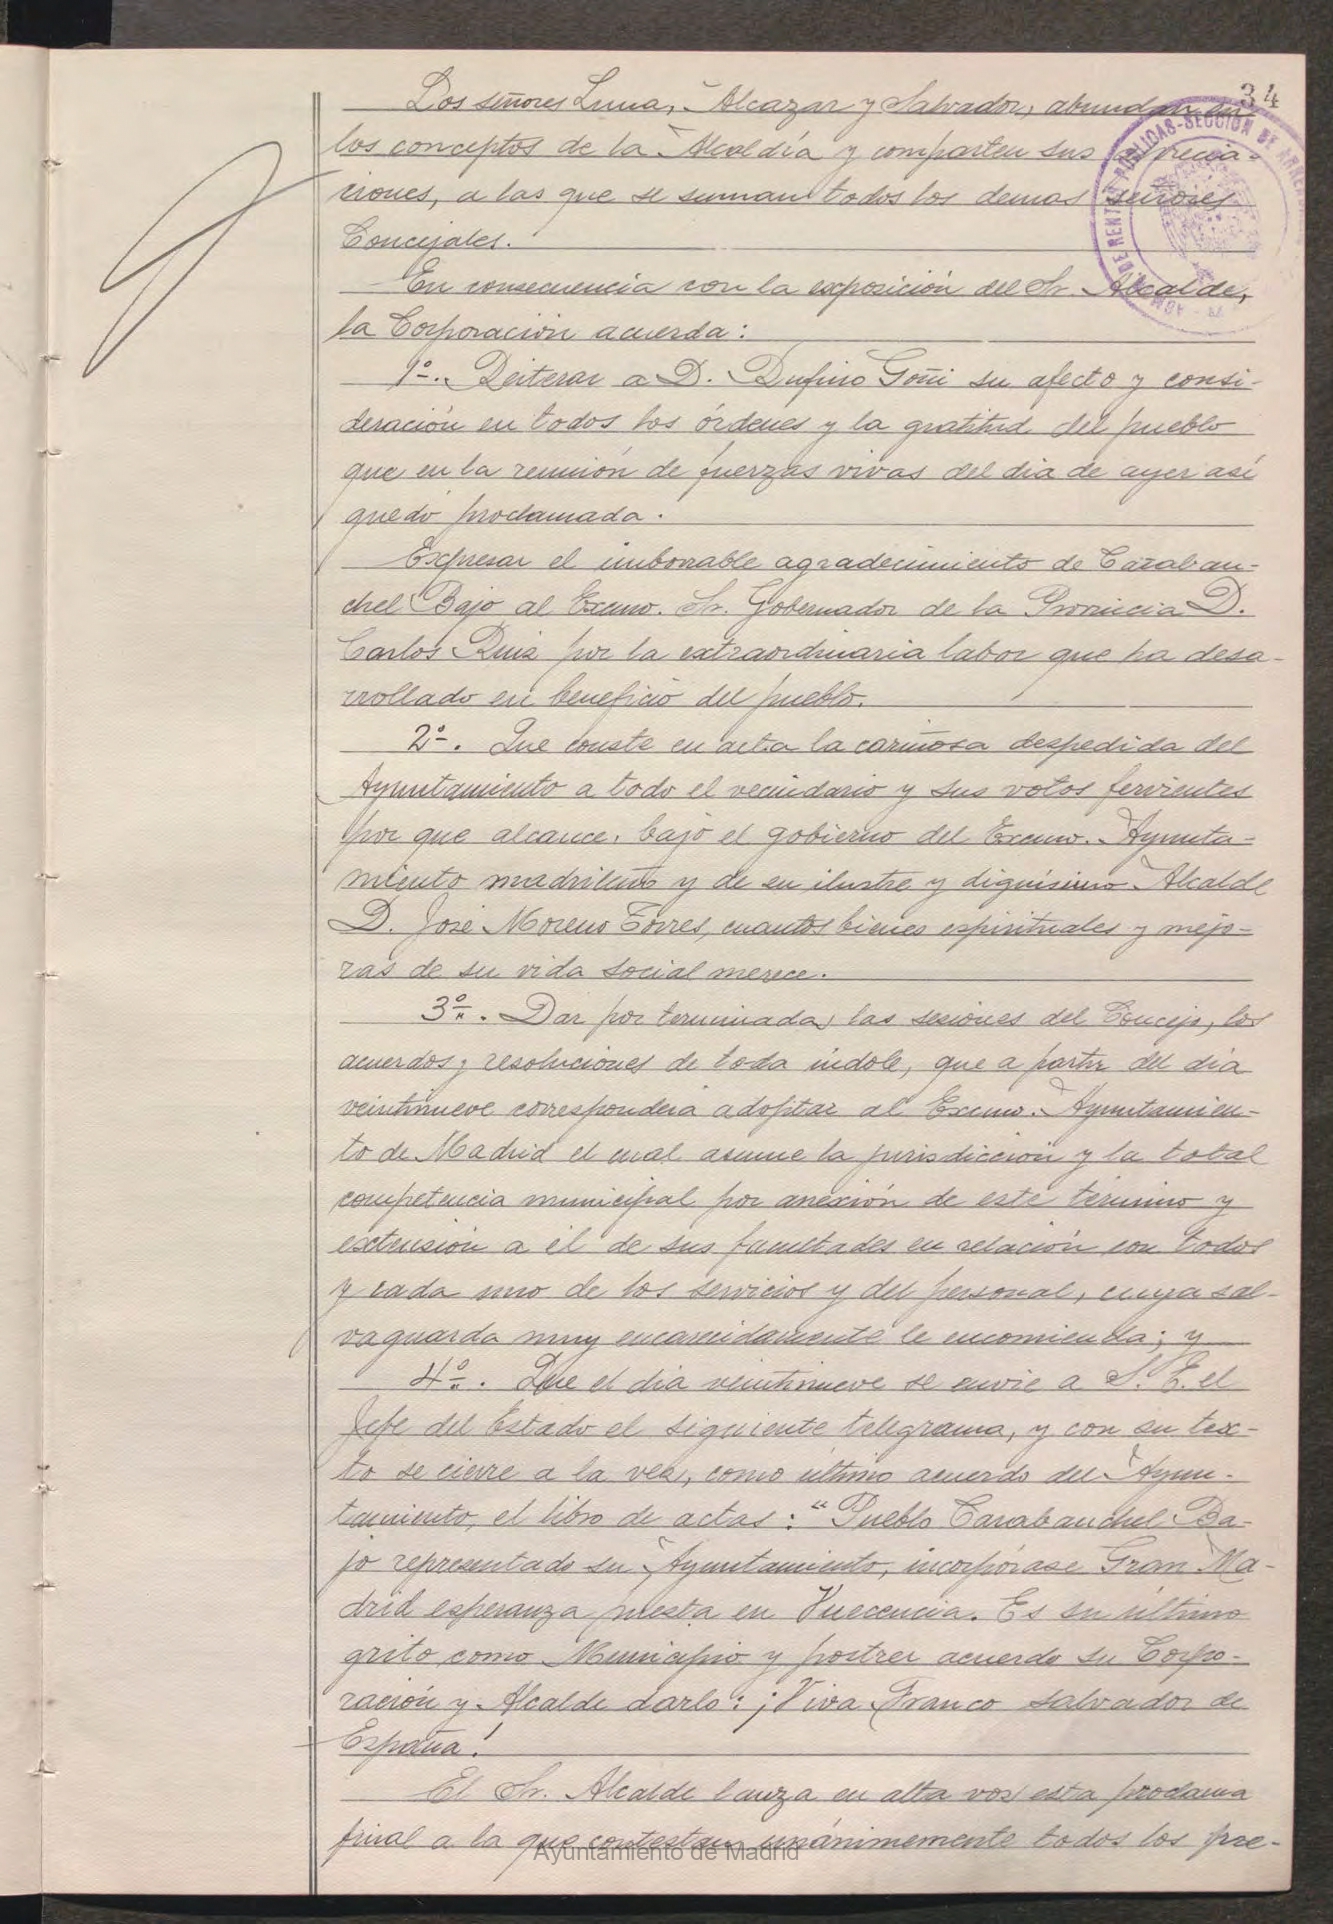 34
Los señores Luna, Alcazar y Salvador, abundan en
los conceptos de la Alcaldía y comparten sus aprecia-
ciones, a las que se suman todos los demas señores
Concejales.
En consecuencia con la exposición del Sr. Alcalde,
la Corporación acuerda:
1º. Reiterar a D. Rufino Goñi su afecto y consi-
deración en todos los órdenes y la gratitud del pueblo
que en la reunión de fuerzas vivas del dia de ayer así
quedó proclamada.
Expresar el imborrable agradecimiento de Caraban-
chel Bajo al Excmo. Sr. Gobernador de la Provincia D.
Carlos Ruiz por la extraordinaria labor que ha desa-
rrollado en beneficio del pueblo.
2º. Que conste en acta la cariñosa despedida del
Ayuntamiento a todo el vecindario y sus votos fervientes
por que alcance, bajo el gobierno del Excmo. Ayunta-
miento madrileño y de su ilustre y dignísimo Alcalde
D. José Moreno Torres, cuantos bienes espirituales y mejo-
ras de su vida social merece.
3º. Dar por terminadas las sesiones del Concejo, los
acuerdos y resoluciones de toda índole, que a partir del día
veintinueve corresponderá adoptar al Excmo. Ayuntamien-
to de Madrid el cual asume la jurisdicción y la total
competencia municipal por anexión de este término y
extensión a él de sus facultades en relación con todos
y cada uno de los servicios y del personal, cuya sal-
vaguarda muy encarecidamente le encomienda; y
4º. Que el día veintinueve se envíe a S. E. el
Jefe del Estado el siguiente telegrama, y con su tex-
to se cierre a la vez, como último acuerdo del Ayun-
tamiento, el libro de actas: "Pueblo Carabanchel Ba-
jo representado su Ayuntamiento, incorpórase Gran Ma-
drid esperanza puesta en Vuecencia. Es su último
grito como Municipio y postrer acuerdo su Corpo-
ración y Alcalde darlo: ¡Viva Franco salvador de
España!
El Sr. Alcalde lanza en alta voz esta proclama
final a la que contestan unánimemente todos los pre-
Ayuntamiento de Madrid
DE RENTAS PÚBLICAS-SECCIÓN DE